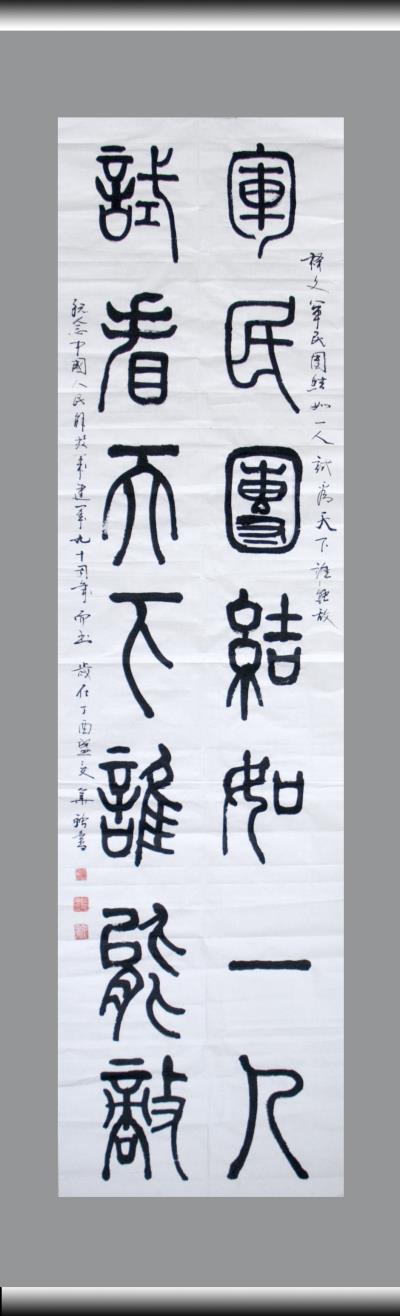 释文 軍民團结如一人 試看天下誰能敌
軍民團結如一人
試看天下誰能敵
纪念中國人民解放軍建軍九十周年而书 歲在丁酉盛夏 書